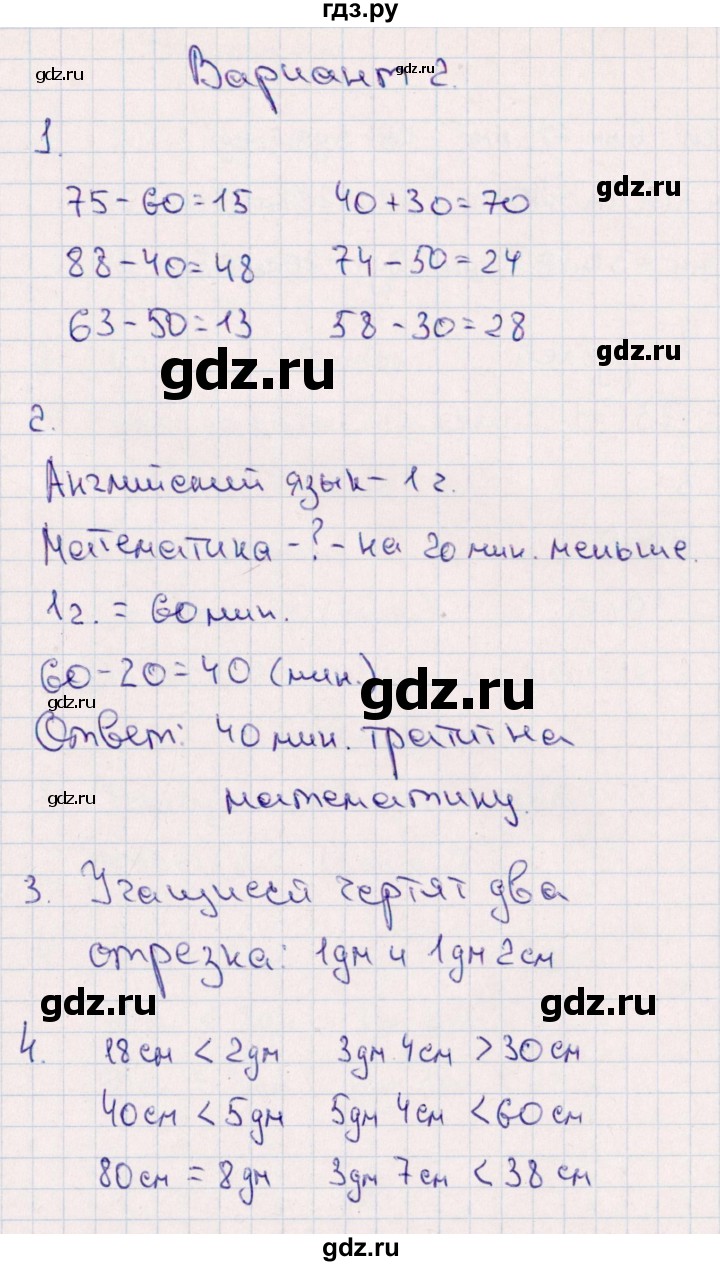 гдз.ру
gdz.ru
Вариант 2.
gdz.ru
1.
75-60=15 40+30=70
gdz.ru
88-40=48 74-50=24
63-50=13 58-30=28
gdz.ru
gdz.ru
2.
Английский язык - 1 ч.
Математика - ? - на 20 мин. меньше.
1 ч. = 60 мин.
60-20=40 (мин.)
gdz.ru
gdz.ru
Ответ: 40 мин. тратит на
gdz.ru
математику.
3. Учащиеся чертят два
отрезка: 1дм и 1дм 2см
gdz.ru
gdz.ru
4. 18см < 2дм 3дм 4см > 30см
40см < 5дм 5дм 4см < 60см
80см = 8дм 3дм 7см < 38см
gdz.ru